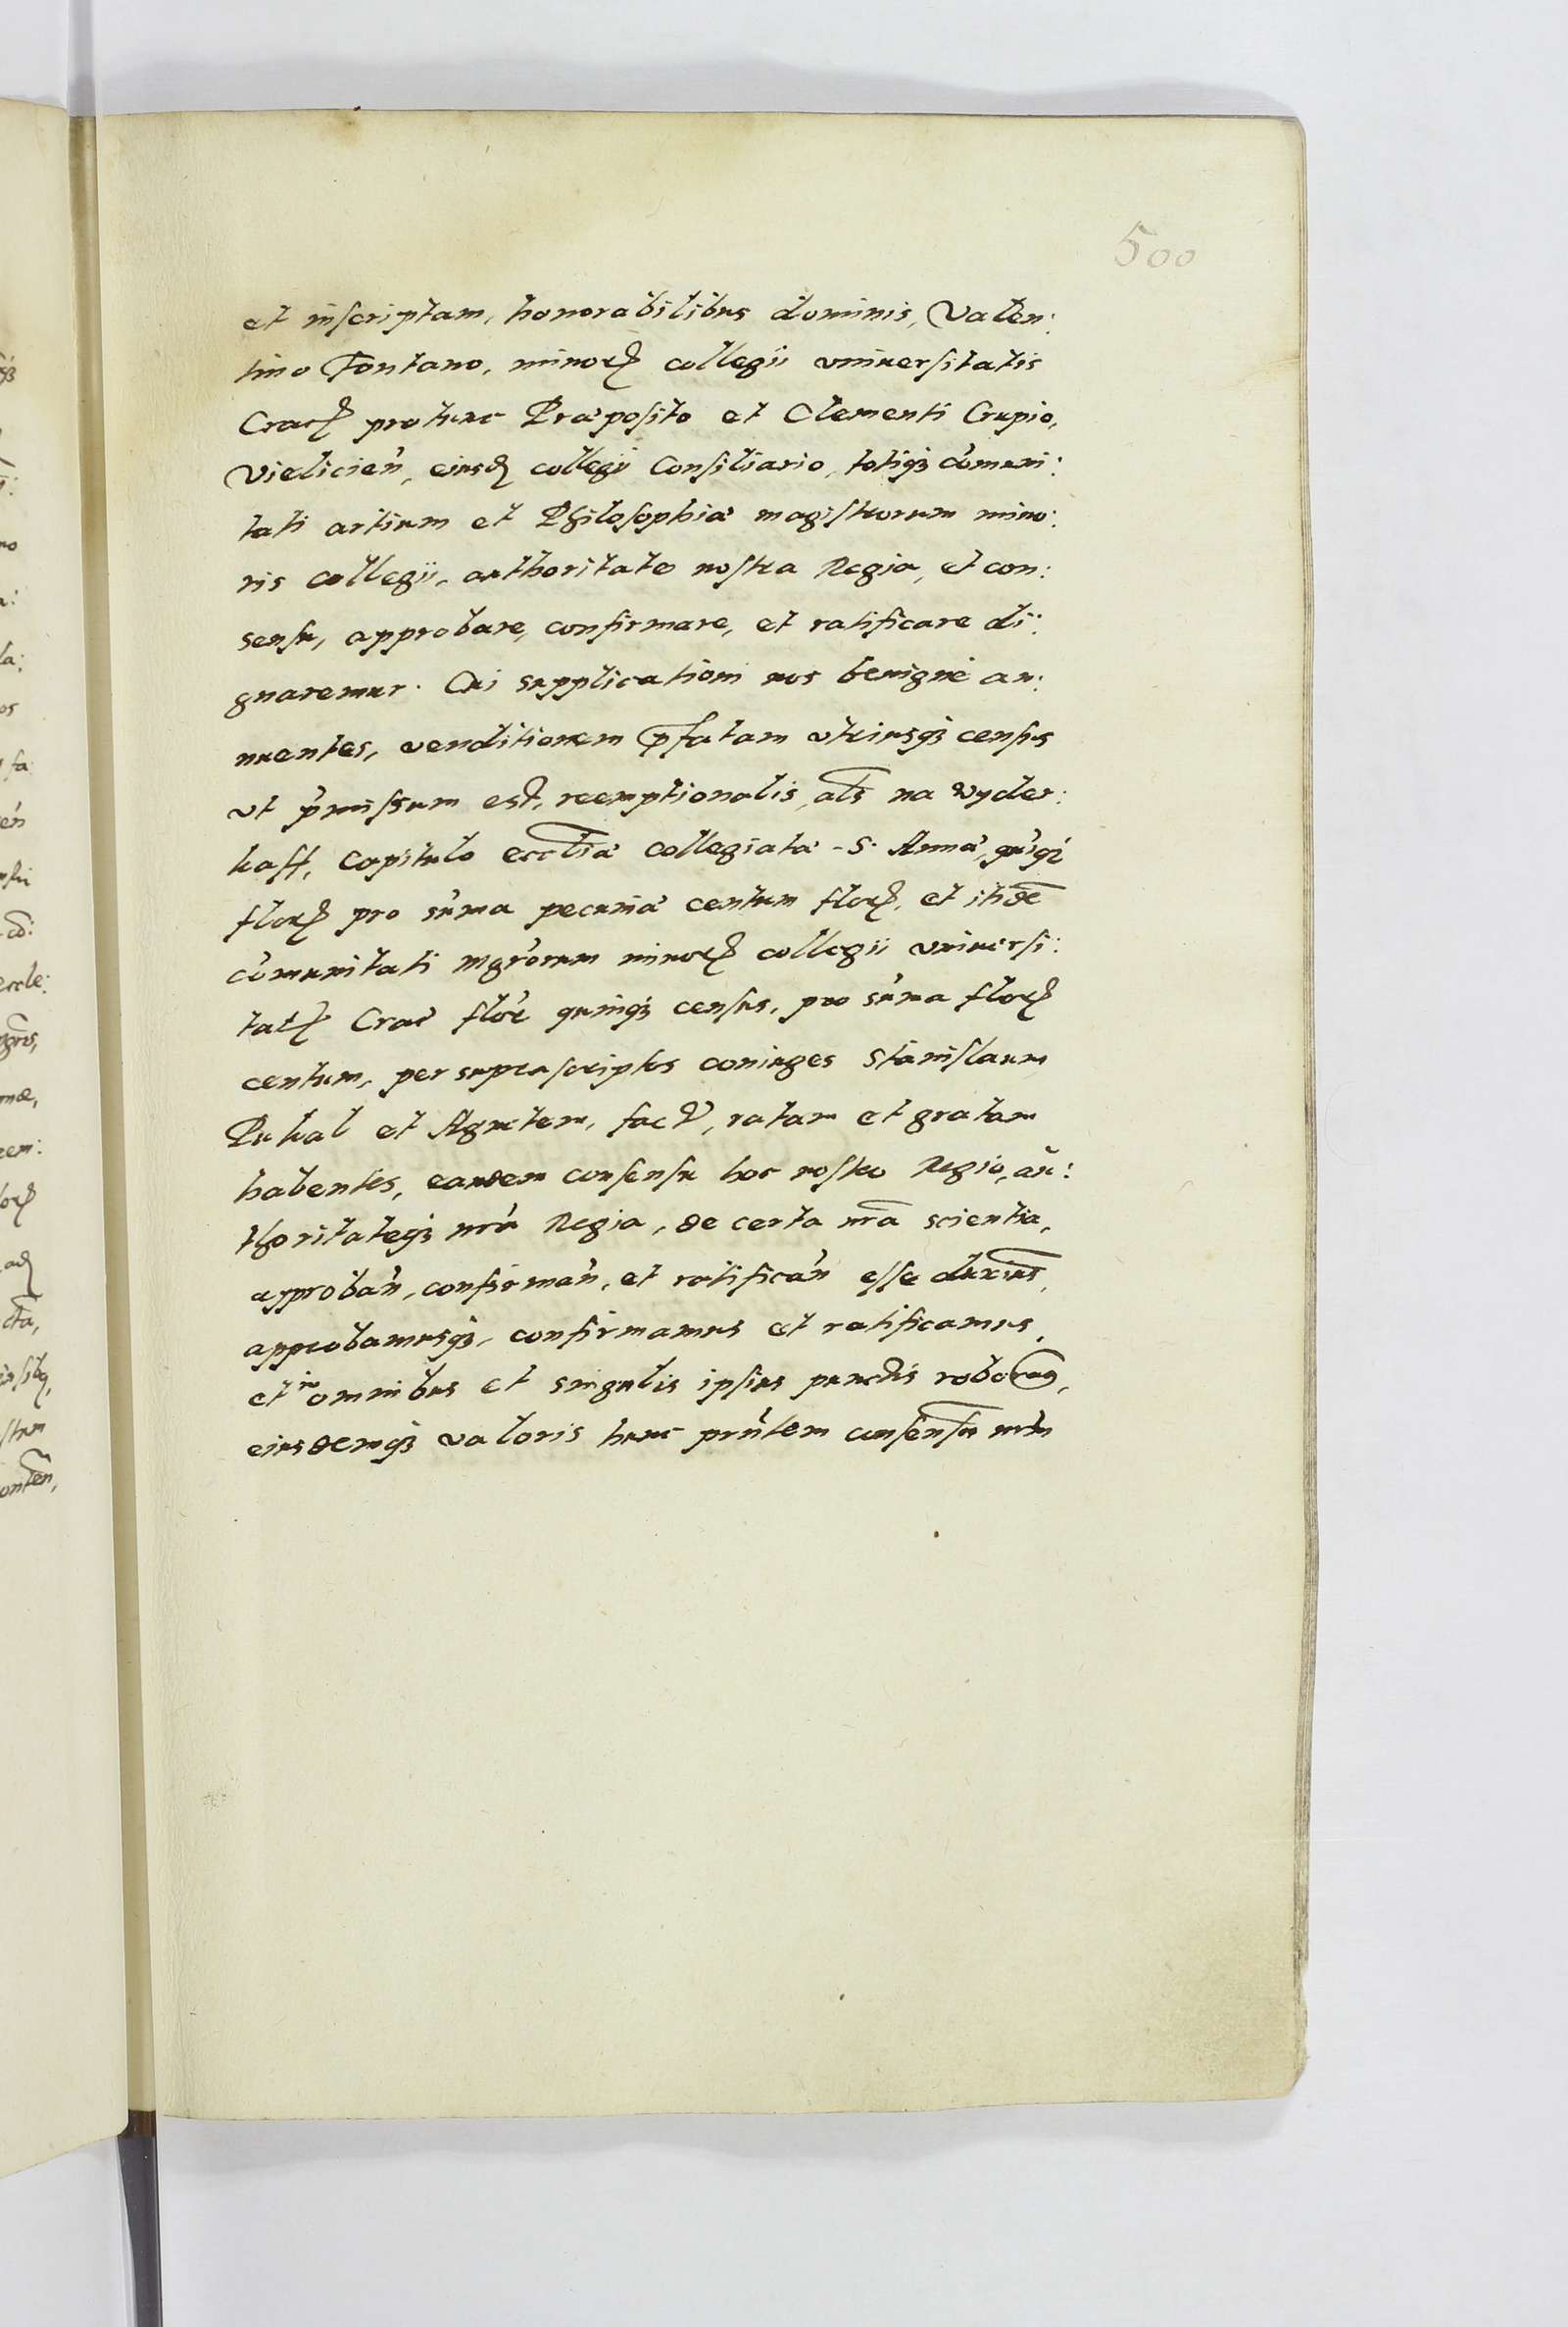 500
et inscriptam, honorabilibus dominis, Valen:
tino Fontano, minorꝭ collegii vniuersitatis
Cracꝭ protunc Præposito et Clementi Crupio,
Vielicień, eiusdꝭ collegij Consiliario, totiqꝫ cõmuni:
tati artium et Philosophiæ magistrorum mino:
ris collegii, authoritate nostra Regia, et con:
sensu, approbare, confirmare, et ratificare di:
gnaremur. Cui supplicationi nos benigné an:
nuentes, venditionem p̄fatam vtriusqꝫ census
vt p̄missum est, reemptionalis, als̄ na wyder:
kaff, capitulo eccl̄iæ collegiatæ S. Annæ, quĩqꝫ
florꝭ pro sũma pecuniæ centum florꝭ, et itidē
cõmunitati mgr̃orum minorꝭ collegii vniuersi:
tatꝭ Crac̃ flor̃ quinqꝫ census, pro sũma florꝭ
centum, per suprascriptos coniuges Stanislaum
et Agnetem, fact̃, ratam et gratam
habentes, eandem consensu hoc nostro Regio, au:
thoritateqꝫ nr̃a Regia, de certa nr̃a scientia,
approbañ, confirmañ, et ratificañ esse duxim̄s,
approbamusqꝫ, confirmamus et ratificamus,
et in omnibus et singulis ipsius punctis
eiusdemqꝫ valoris hunc pr̃ntem consensũ nr̃m